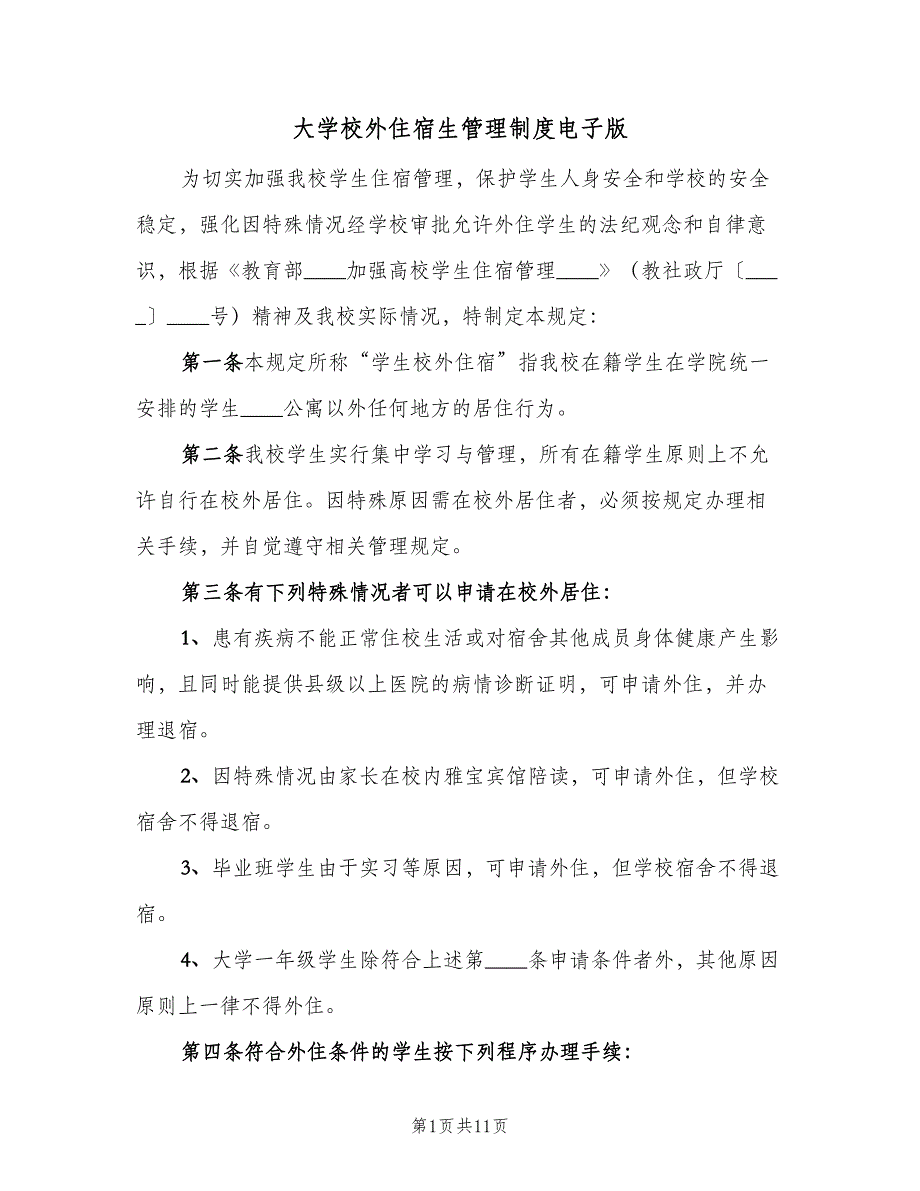 大学校外住宿生管理制度电子版
为切实加强我校学生住宿管理，保护学生人身安全和学校的安全
稳定，强化因特殊情况经学校审批允许外住学生的法纪观念和自律意
识，根据《教育部____加强高校学生住宿管理____》（教社政厅〔___
_〕____号）精神及我校实际情况，特制定本规定：
第一条本规定所称“学生校外住宿”指我校在籍学生在学院统一
安排的学生____公寓以外任何地方的居住行为。
第二条我校学生实行集中学习与管理，所有在籍学生原则上不允
许自行在校外居住。因特殊原因需在校外居住者，必须按规定办理相
关手续，并自觉遵守相关管理规定。
第三条有下列特殊情况者可以申请在校外居住：
1、患有疾病不能正常住校生活或对宿舍其他成员身体健康产生影
响，且同时能提供县级以上医院的病情诊断证明，可申请外住，并办
理退宿。
2、因特殊情况由家长在校内雅宝宾馆陪读，可申请外住，但学校
宿舍不得退宿。
3、毕业班学生由于实习等原因，可申请外住，但学校宿舍不得退
宿。
4、大学一年级学生除符合上述第____条申请条件者外，其他原因
原则上一律不得外住。
第四条符合外住条件的学生按下列程序办理手续：
第1页共11页